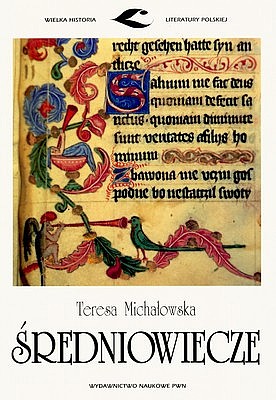 WIELKA HISTORIA LITERATURY POLSKIEJ
recht gesehen hatte syn an
tlicze
Saluum me fac deus
quoniam defecit sa
nctus · quoniam diminute
sunt ueritates afilijs ho
minum
Zbawona me uczin gos
podne bo nestatczil swoty
Teresa Michałowska
ŚREDNIOWIECZE
WYDAWNICTWO NAUKOWE PWN